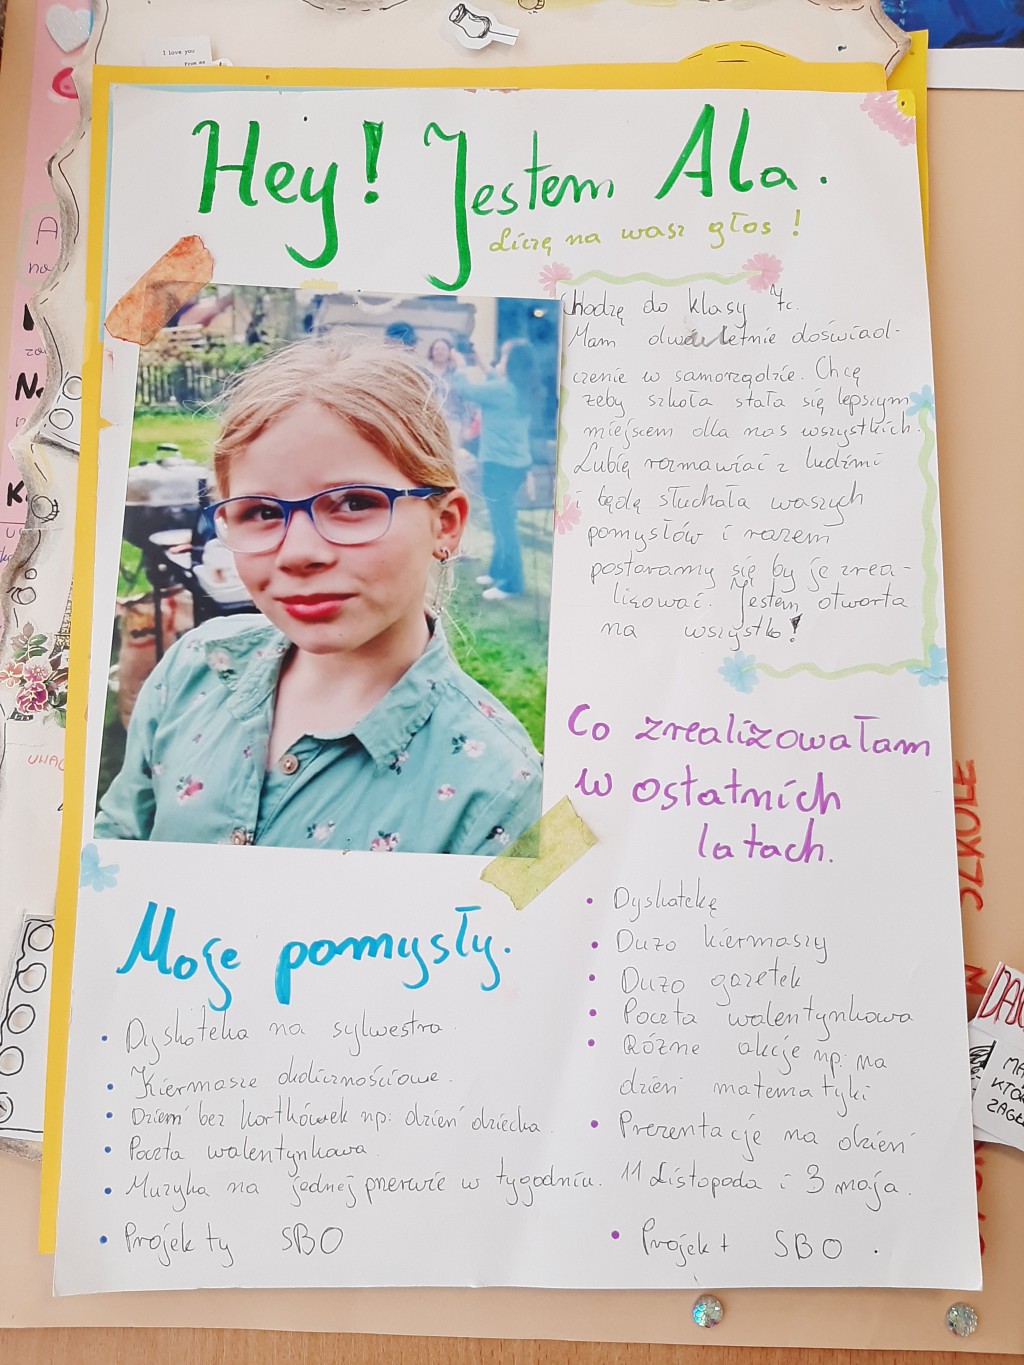 I love you
From me
Hey! Jestem Ala.
Liczę na wasz głos!
Chodzę do klasy 7c.
Mam dwuletnie doświad-
czenie w samorządzie. Chcę
żeby szkoła stała się lepszym
miejscem dla nas wszystkich.
Lubię rozmawiać z ludźmi
i będę słuchała waszych
pomysłów i razem
postaramy się by je zrea-
lizować. Jestem otwarta
na wszystko!
Co zrealizowałam
w ostatnich
latach.
• Dyskotekę
• Dużo kiermaszy
• Dużo gazetek
• Poczta walentynkowa
• Różne akcje np: na
dzień matematyki
• Prezentacje na dzień
11 Listopada i 3 maja.
• Projekt SBO.
Moje pomysły.
• Dyskoteka na sylwestra.
• Kiermasze okolicznościowe.
• Dzień bez kartkówek np: dzień dziecka.
• Poczta walentynkowa.
• Muzyka na jednej przerwie w tygodniu.
• Projekty SBO
W SZKOLE